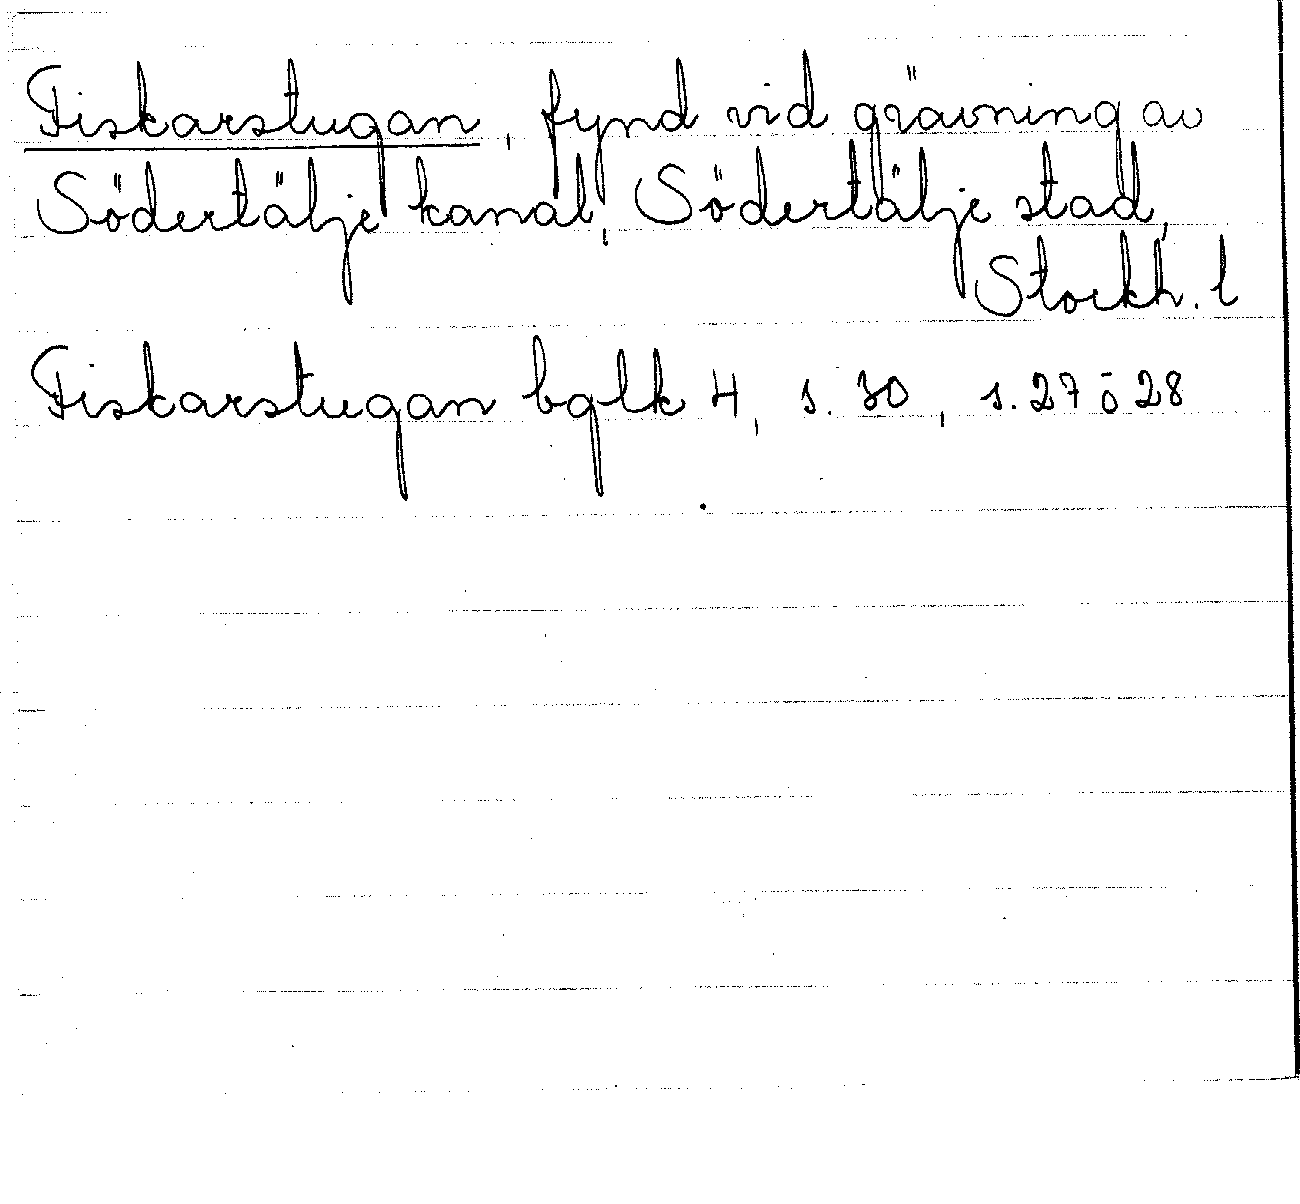 Fiskarstugan, fynd vid grävning av
Södertälje kanal, Södertälje stad,
Stockh. l
Fiskarstugan bglk 4, s. 30, s. 27 o 28